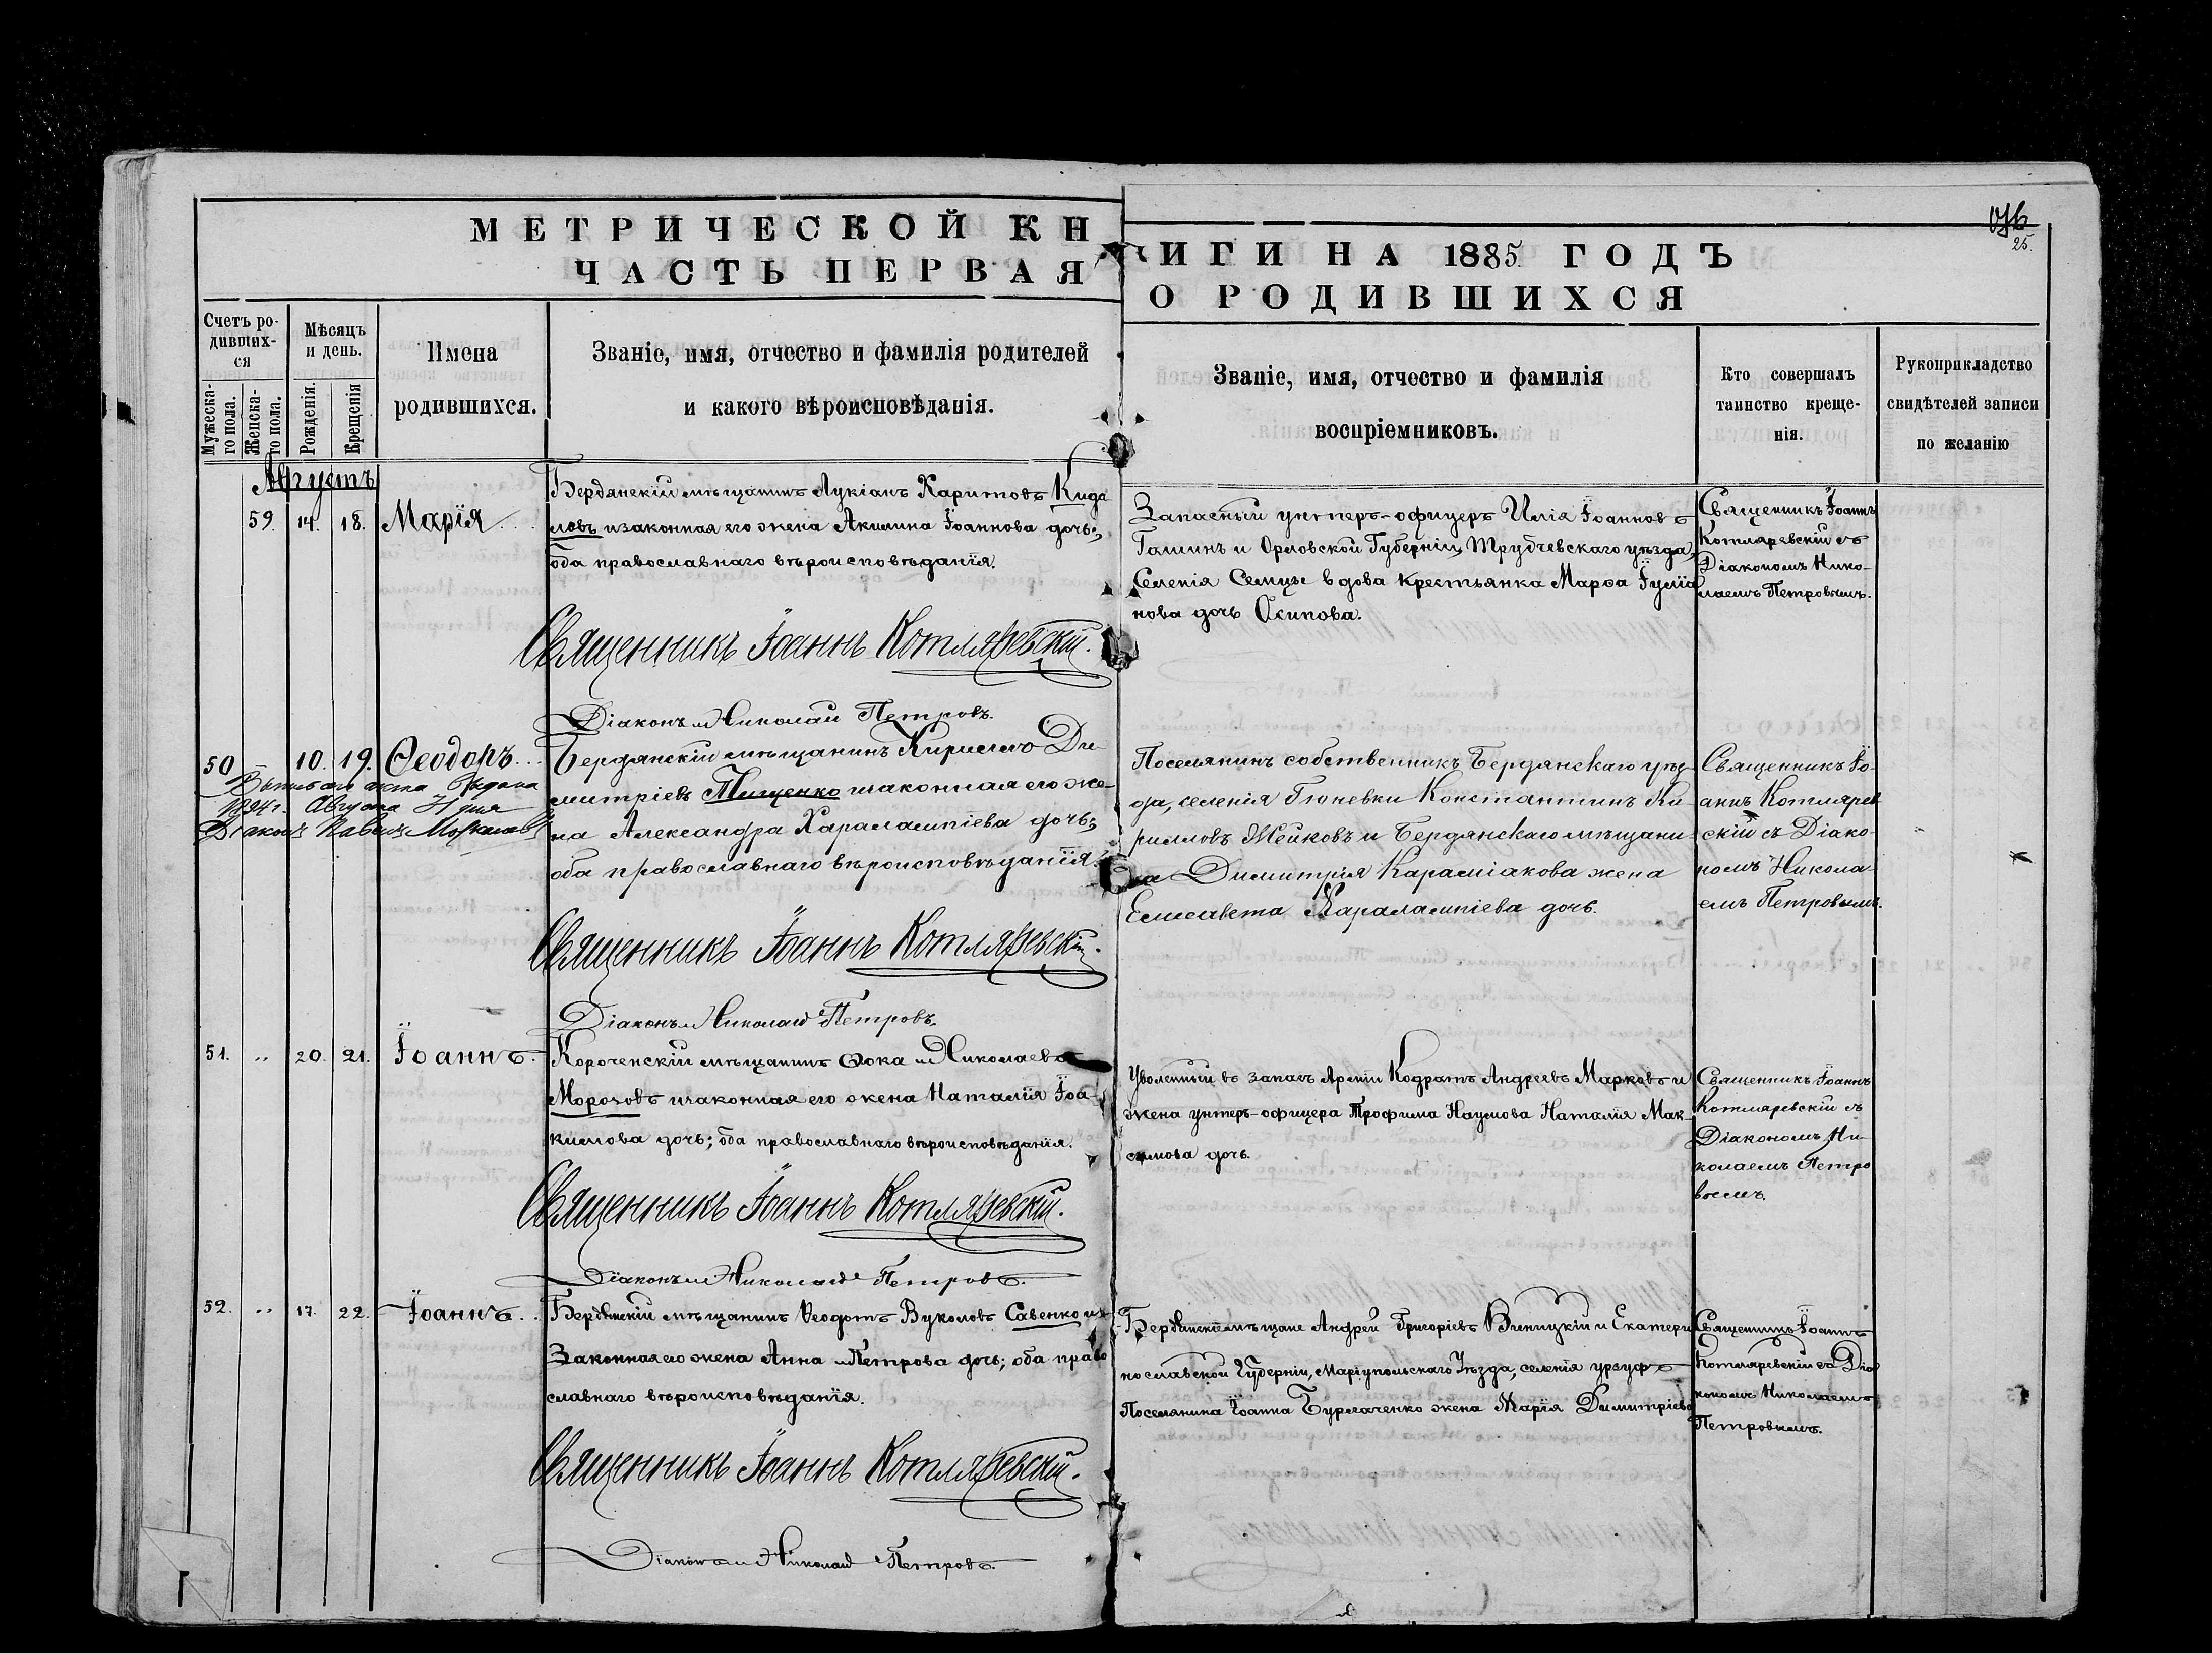 МЕТРИЧЕСКОЙ КН
ИГИ НА 1885 ГОДЪ
ЧАСТЬ ПЕРВАЯ
О РОДИВШИХСЯ
25.
Счетъ ро-
дивших-
ся
Мужеска-
го пола.
Женска-
го пола.
Мѣсяцъ
и день.
Рожденія.
Крещенія
Имена
родившихся.
Званіе, имя, отчество и фамилія родителей
и какого вѣроисповѣданія.
Званіе, имя, отчество и фамилія
воспріемниковъ.
Кто совершалъ
таинство креще-
нія.
Рукоприкладство
свидѣтелей записи
по желанію
Августъ
59. 14. 18. Марія
Бердянскій мѣщанинъ Лукіанъ Харитовъ Кида
ловъ и законная его жена Акилина Іоаннова дочь;
оба православнаго вѣроисповѣданія.
Священникъ Іоаннъ Котляревскій.
Діаконъ Николай Петровъ.
Запасный унтеръ-офицеръ Илія Іоанновъ
Гашинъ и Орловской Губерніи, Трубчевскаго уѣзда,
Селенія Семцы вдова крестьянка Марѳа Іуліа
нова дочь Осипова.
Священникъ Іоаннъ
Котляревскій съ
Діакономъ Нико-
лаемъ Петровымъ.
50 10. 19. Ѳеодоръ
1894 г. Августа
Діаконъ Павелъ
Бердянскій мѣщанинъ Кириллъ Ди-
митріевъ Тищенко и законная его же-
на Александра Харалампіева дочь;
оба православнаго вѣроисповѣданія.
Священникъ Іоаннъ Котляревскій.
Діаконъ Николай Петровъ.
Поселянинъ собственникъ Бердянскаго уѣз-
да, селенія Гюневки Константинъ Ки-
рилловъ Жейковъ и Бердянскаго мѣщани-
на Димитрія Караміакова жена
Елисавета Харалампіева дочь.
Священникъ Іо-
аннъ Котлярев
скій съ Діако-
номъ Никола-
емъ Петровымъ.
51. „ 20. 21. Іоаннъ.
Короченскій мѣщанинъ Ѳока Николаевъ
Морозовъ и законная его жена Наталія Іоа-
кимова дочь; оба православнаго вѣроисповѣданія.
Священникъ Іоаннъ Котляревскій.
Діаконъ Николай Петровъ.
Уволенный въ запасъ Арміи Кодратъ Андреевъ Марковъ и
жена унтеръ-офицера Трофима Наумова Наталія Мак-
симова дочь.
Священникъ Іоаннъ
Котляревскій съ
Діакономъ Ни-
колаемъ Петро
вымъ.
52. „ 17. 22. Іоаннъ.
Бердянскій мѣщанинъ Ѳеодотъ Вуколовъ Савенко и
Законная его жена Анна Петрова дочь; оба право
славнаго вѣроисповѣданія.
Священникъ Іоаннъ Котляревскій.
Діаконъ Николай Петровъ.
Бердянскій мѣщане Андрей Григоріевъ Виницкій и Екатери
нославской Губерніи, Маріупольскаго Уѣзда, селенія Урзуфъ
Поселянина Іоанна Бурлаченко жена Марія Димитріева
Священникъ Іоаннъ
Котляревскій съ Діа
кономъ Николаемъ
Петровымъ.